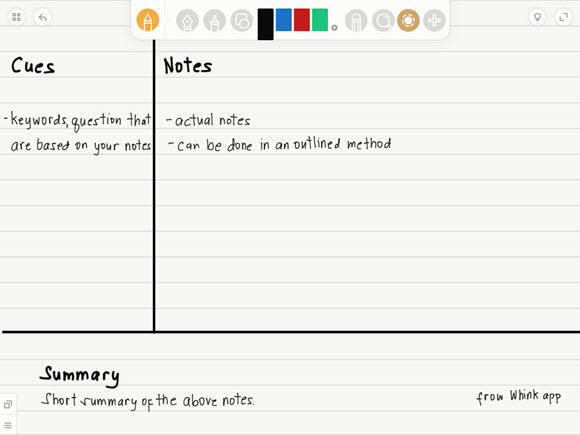 Cues
Notes
-keywords, question that
are based on your notes
-actual notes
-can be done in an outlined method
Summary
Short summary of the above notes.
from Whink app